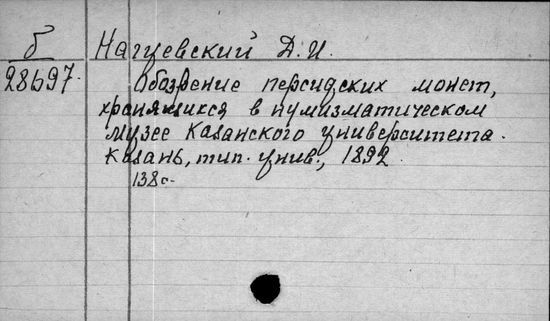 б
28697.
Нагуевский Д. И.
Обозрение персидских монет,
хранящихся в нумизматическом
музее Казанского университета.
Казань, тип. унив., 1892.
138 с.